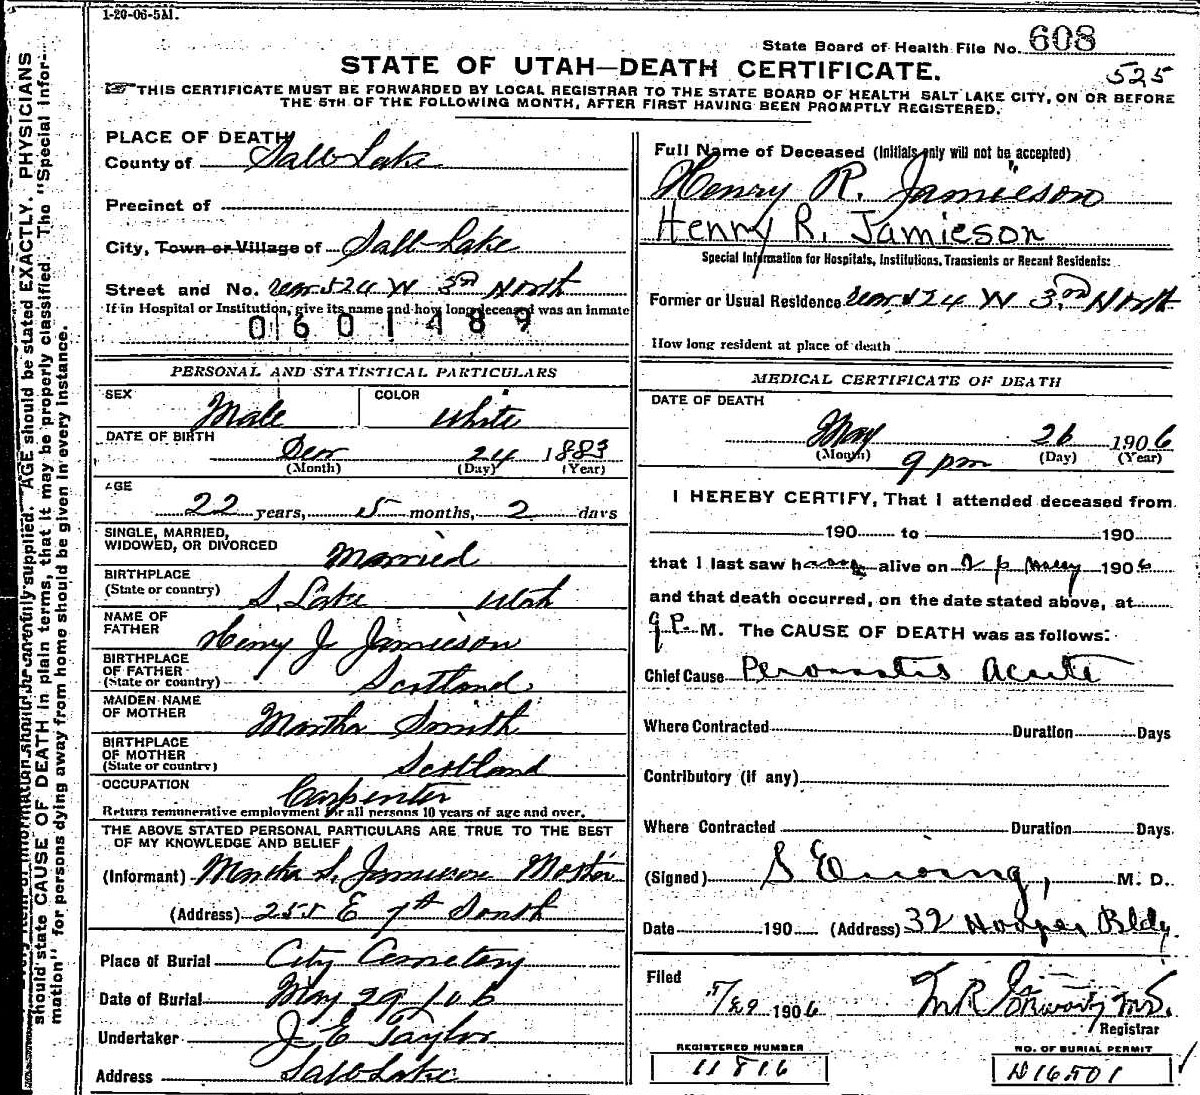 1-20-06-5M.
State Board of Health File No. 608
525
STATE OF UTAH—DEATH CERTIFICATE.
THIS CERTIFICATE MUST BE FORWARDED BY LOCAL REGISTRAR TO THE STATE BOARD OF HEALTH SALT LAKE CITY, ON OR BEFORE
THE 5TH OF THE FOLLOWING MONTH, AFTER FIRST HAVING BEEN PROMPTLY REGISTERED.
PLACE OF DEATH
County of Salt Lake
Precinct of
City, Town or Village of Salt Lake
Street and No. 524 W 3rd North
If in Hospital or Institution, give its name and how long deceased was an inmate
0601489
PERSONAL AND STATISTICAL PARTICULARS
SEX Male COLOR White
DATE OF BIRTH Dec 24 1883
(Month) (Day) (Year)
AGE
22 years, 5 months, 2 days
SINGLE, MARRIED,
WIDOWED, OR DIVORCED Married
BIRTHPLACE
(State or country) S. Lake Utah
NAME OF
FATHER Henry J. Jamieson
BIRTHPLACE
OF FATHER
(State or country) Scotland
MAIDEN NAME
OF MOTHER Martha Smith
BIRTHPLACE
OF MOTHER
(State or country) Scotland
OCCUPATION Carpenter
Return remunerative employment for all persons 10 years of age and over.
THE ABOVE STATED PERSONAL PARTICULARS ARE TRUE TO THE BEST
OF MY KNOWLEDGE AND BELIEF
(Informant) Martha S. Jamieson Mother
(Address) 255 E 7th South
Place of Burial City Cemetery
Date of Burial May 29/06
Undertaker J E Taylor
Address Salt Lake
Full Name of Deceased (Initials only will not be accepted)
Henry R. Jamieson
Henry R. Jamieson
Special Information for Hospitals, Institutions, Transients or Recent Residents:
Former or Usual Residence 524 W 3rd North
How long resident at place of death
MEDICAL CERTIFICATE OF DEATH
DATE OF DEATH
May 26 1906
(Month) (Day) (Year)
9 pm
I HEREBY CERTIFY, That I attended deceased from
190 to 190
that I last saw h alive on May 1906
and that death occurred, on the date stated above, at
9 P. M. The CAUSE OF DEATH was as follows:
Chief Cause Acute
Where Contracted Duration Days
Contributory (if any)
Where Contracted Duration Days.
(Signed) S Ewing, M. D.
Date 190 (Address) 32 Hooper Bldg.
Filed
5/29 1906
M.D.
Registrar
REGISTERED NUMBER
11816
NO. OF BURIAL PERMIT
D16501
should state CAUSE OF DEATH in plain terms, that it may be properly classified. The "Special Infor-
mation" for persons dying away from home should be given in every instance.
AGE should be stated EXACTLY. PHYSICIANS